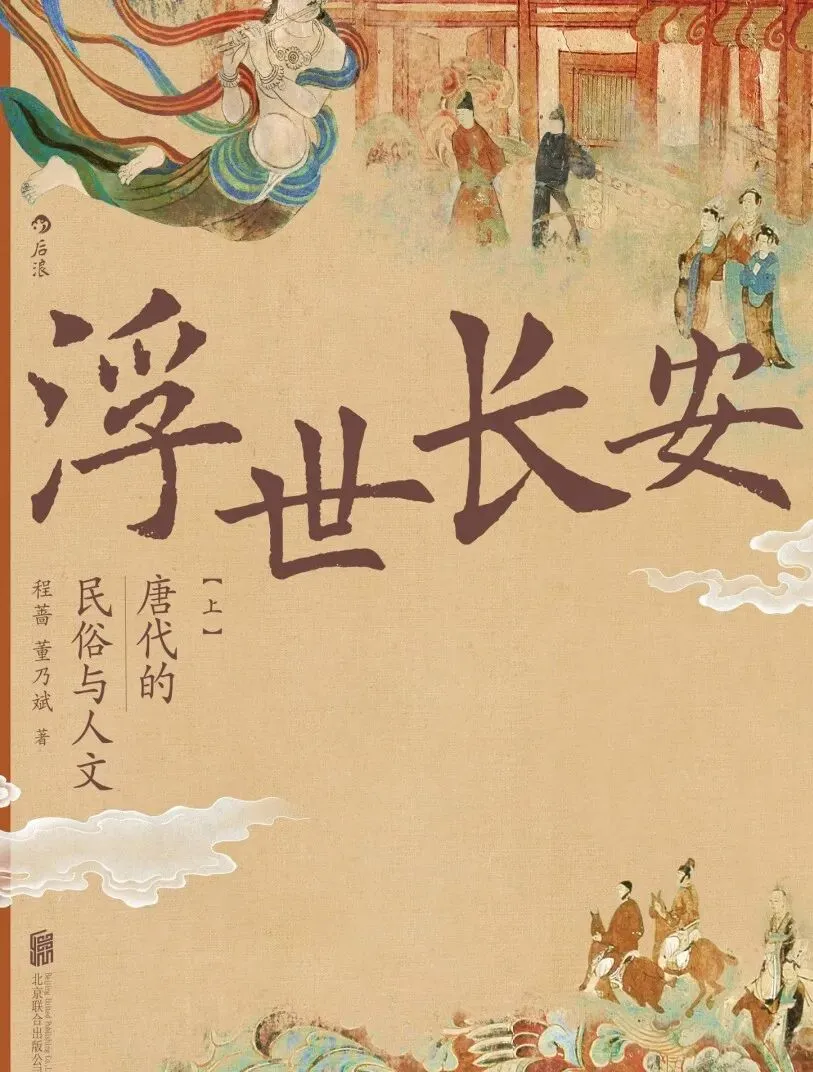 后浪
浮世长安
【上】
唐代的
民俗与人文
程蔷 董乃斌 著
北京联合出版公司
Beijing United Publishing Co.,Ltd.